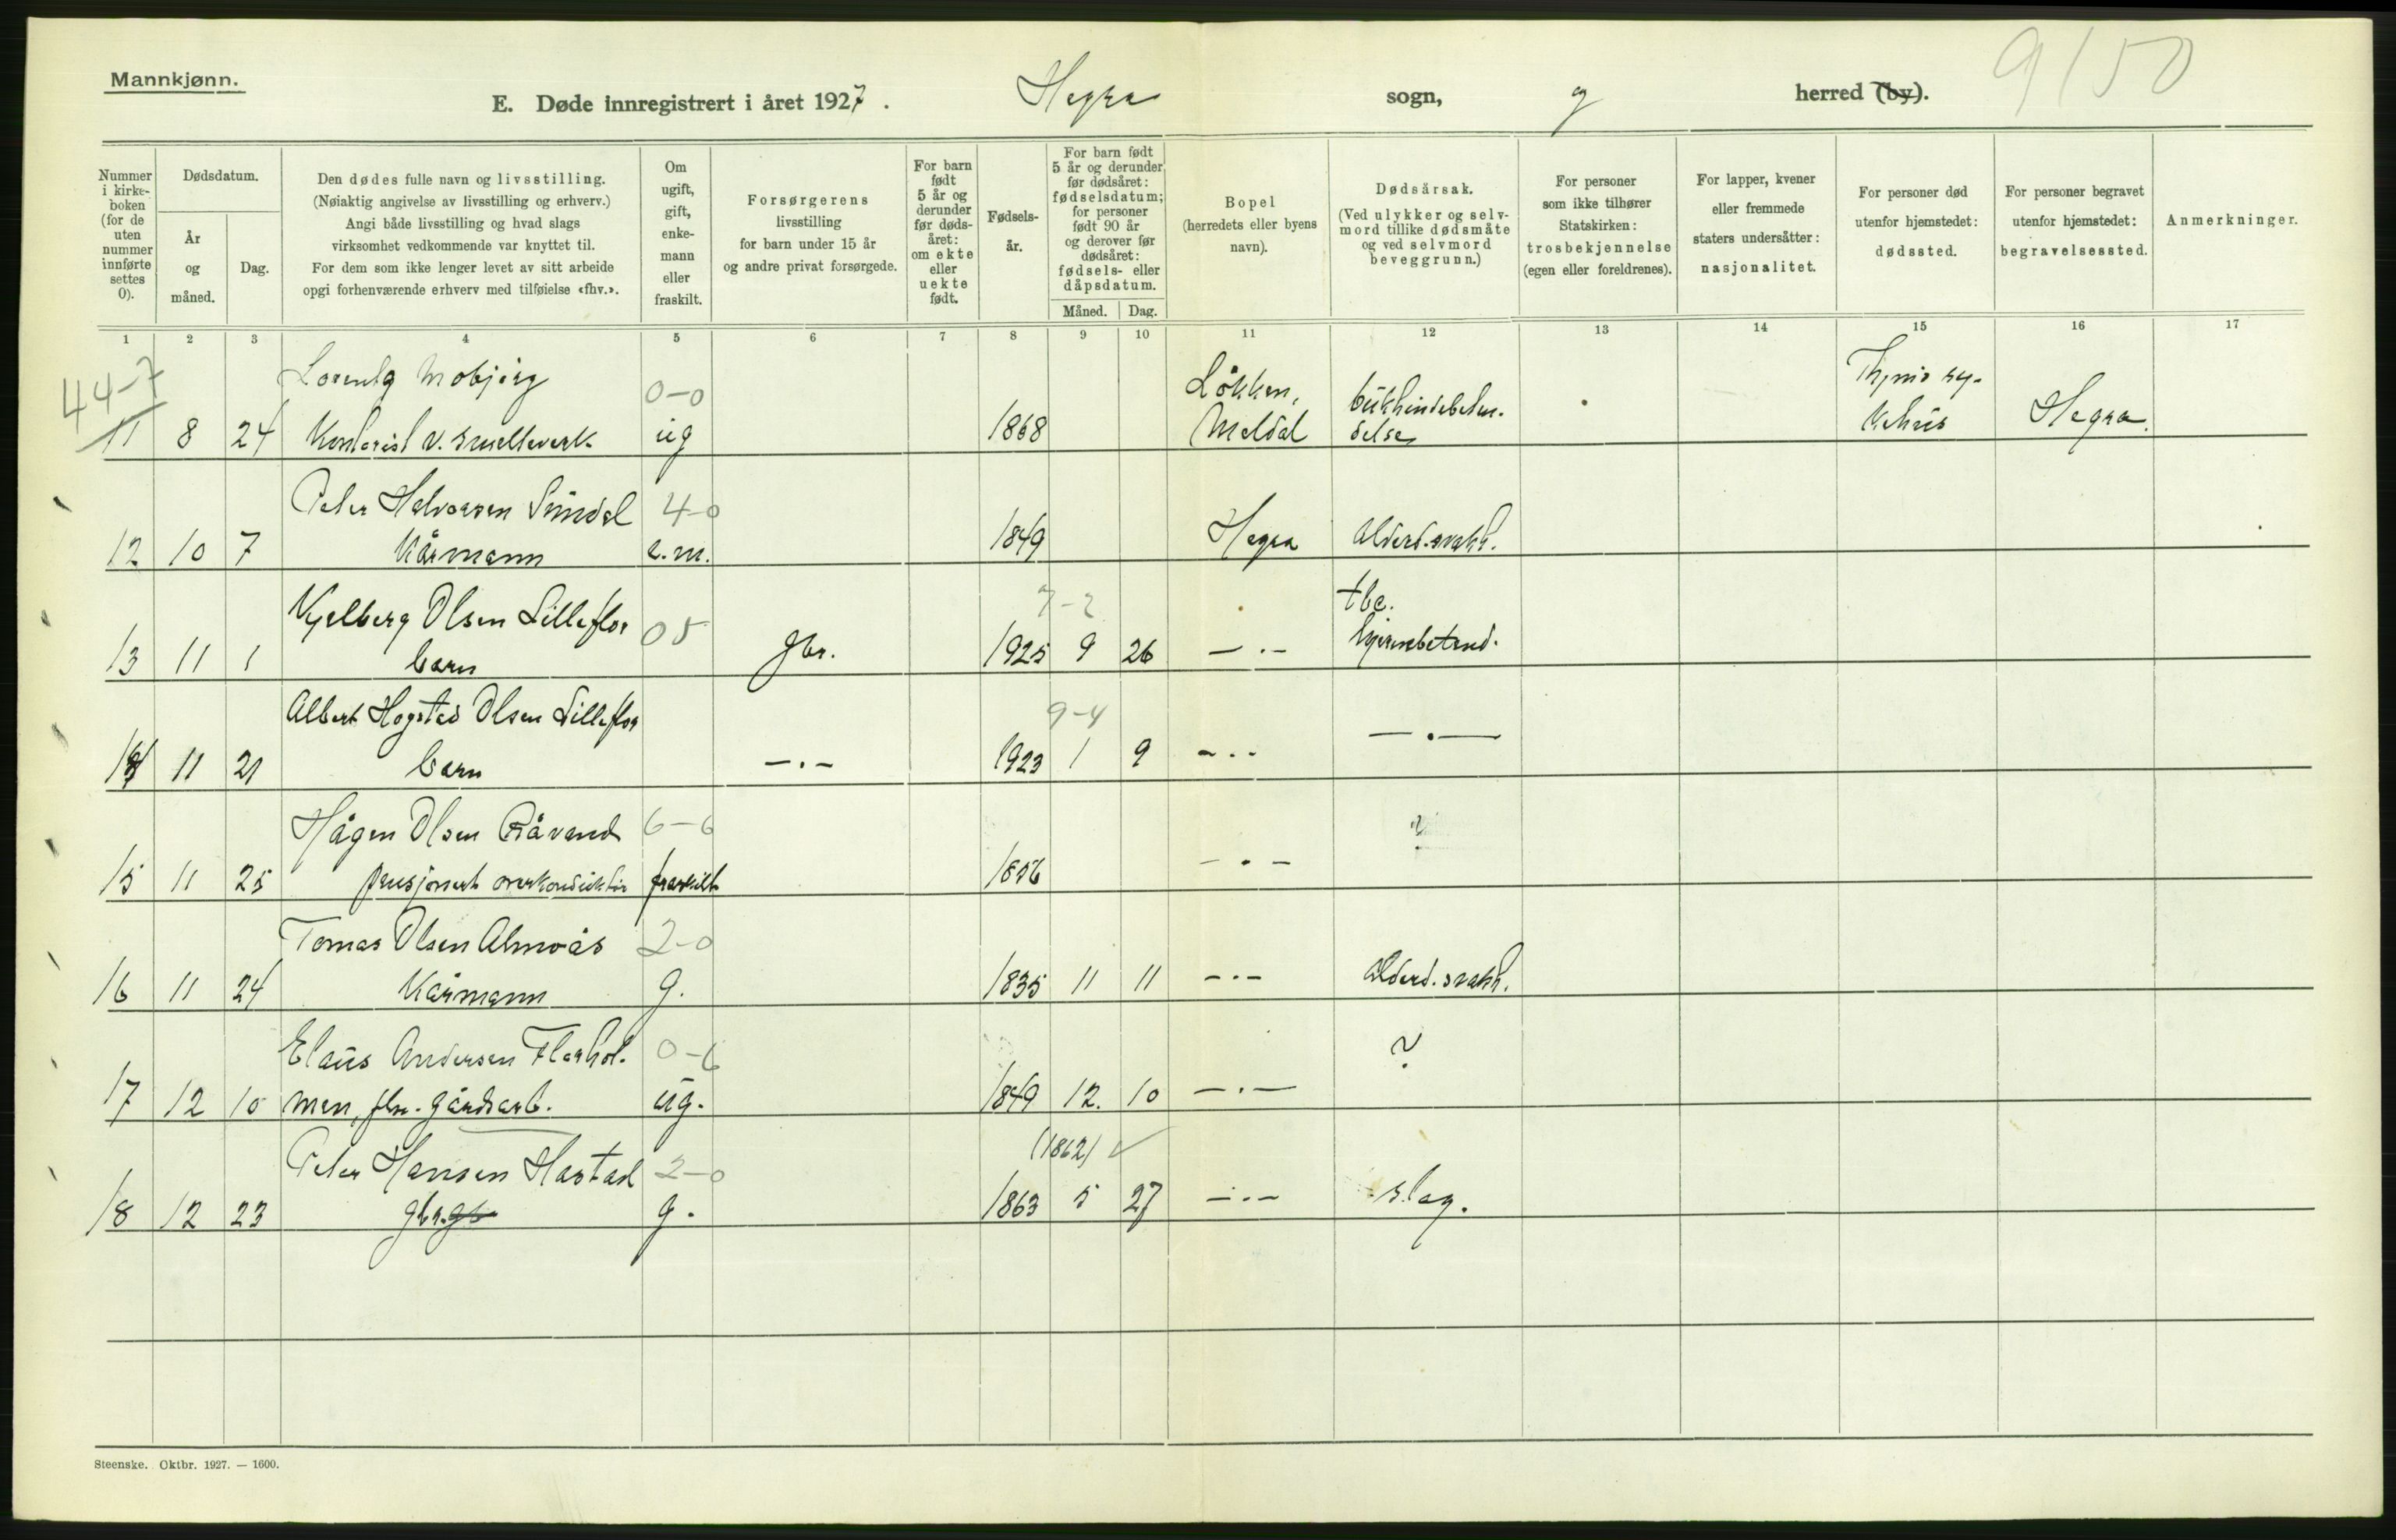 Mannkjønn.
9150
E. Døde innregistrert i året 1927. Hegra sogn, herred (by).
Nummer i kirkeboken (for de uten nummer innførte settes 0).
Dødsdatum.
År og måned.
Dag.
Den dødes fulle navn og livsstilling.
(Nøiaktig angivelse av livsstilling og erhverv.)
Angi både livsstilling og hvad slags
virksomhet vedkommende var knyttet til.
For dem som ikke lenger levet av sitt arbeide
opgi forhenværende erhverv med tilføielse «fhv.».
Om ugift, gift, enkemann eller fraskilt.
Forsørgerens
livsstilling
for barn under 15 år
og andre privat forsørgede.
For barn født 5 år og derunder før dødsåret: om ekte eller uekte født.
Fødselsår.
For barn født
5 år og derunder
før dødsåret:
fødselsdatum;
for personer
født 90 år
og derover før
dødsåret:
fødsels- eller
dåpsdatum.
Måned. Dag.
Bopel
(herredets eller byens
navn).
Dødsårsak.
(Ved ulykker og selv-
mord tillike dødsmåte
og ved selvmord
beveggrunn.)
For personer
som ikke tilhører
Statskirken:
trosbekjennelse
(egen eller foreldrenes).
For lapper, kvener
eller fremmede
staters undersåtter:
nasjonalitet.
For personer død
utenfor hjemstedet:
dødssted.
For personer begravet
utenfor hjemstedet:
begravelsessted.
Anmerkninger.
1 2 3 4 5 6 7 8 9 10 11 12 13 14 15 16 17
44-7
0-0 Løkken, bukhindebeten-
11 8 24 Kontorist v. smelteverk ug 1868 Meldal delse kehus Hegra.
Peter Halvorsen Sundal 4-0
12 10 7 Kårmann e.m. 1849 Hegra alderd.svakh.
Olsen Lilleflor 05 7-2 tbc.
13 11 1 barn gbr. 1925 9 26 -.- hjernebetend.
Albert Hogstad Olsen Lilleflor 9-4
14 11 21 barn -.- 1923 1 9 -.- -.-
Hågen Olsen Råvand 6-6 ?
15 11 25 pensjonert overkonduktør fraskilt 1856 -.-
Tomas Olsen Almoås 2-0
16 11 24 Kårmann g. 1835 11 11 -.- alderd.svakh.
Elaus Andersen Florhol- 0-6 ?
17 12 10 men, fhv. gårdsarb. ug. 1849 12. 10 -.-
Peter Hansen Hastad 2-0 (1862) ✓
18 12 23 gbr. g. 1863 5 27 -.- slag.
Steenske. Oktbr. 1927. — 1600.